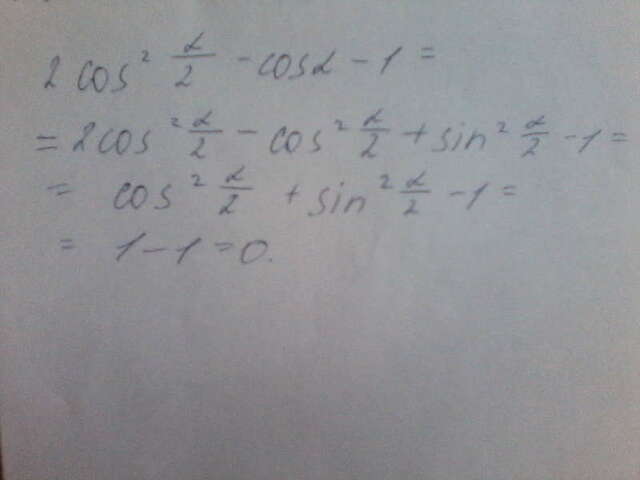 2 cos² α/2 - cosα - 1 =
= 2cos² α/2 - cos² α/2 + sin² α/2 - 1 =
= cos² α/2 + sin² α/2 - 1 =
= 1 - 1 = 0.